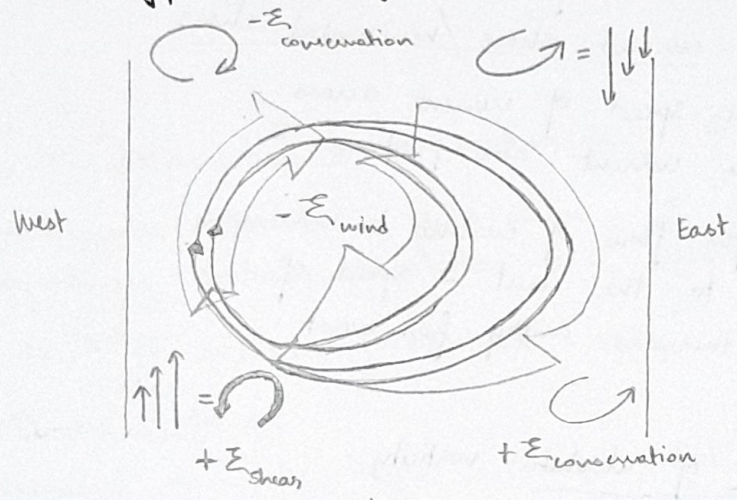 -ξ conservation
=
West
- ξ wind
East
=
+ ξ shear
+ ξ conservation